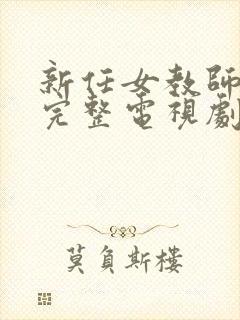 新任女教師
完整電視劇
莫負斯樓